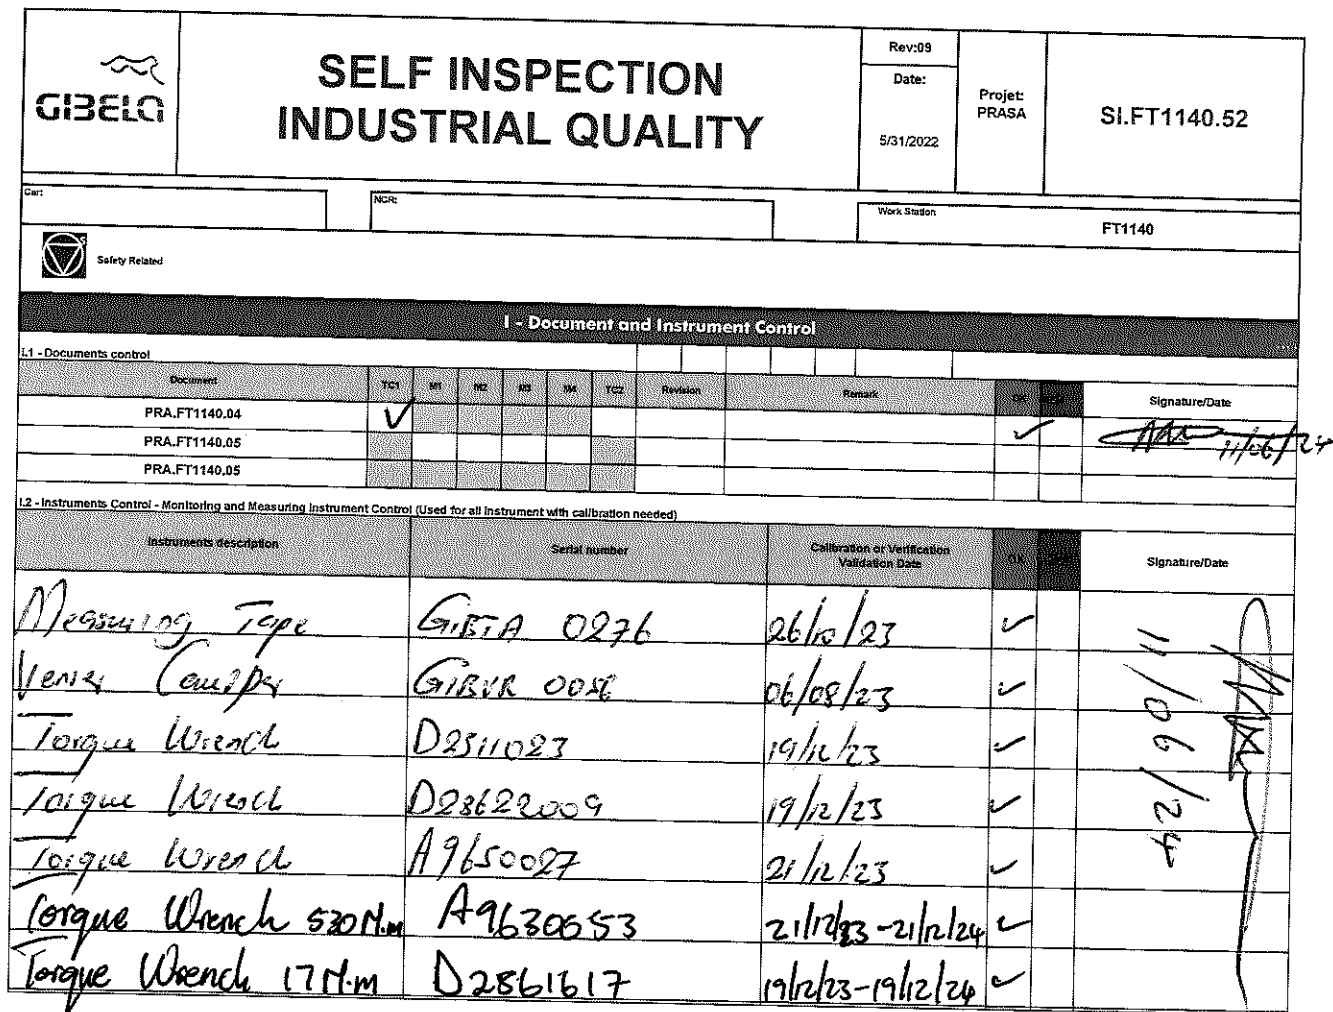 GIBELA
SELF INSPECTION
INDUSTRIAL QUALITY
Rev:09
Date:
5/31/2022
Projet:
PRASA
SI.FT1140.52
Car:
NCR:
Work Station
FT1140
Safety Related
I - Document and Instrument Control
I.1 - Documents control
Document TC1 M1 M2 M3 M4 TC2 Revision Remark OK Signature/Date
PRA.FT1140.04 ✓ ✓ 11/06/24
PRA.FT1140.05
PRA.FT1140.05
I.2 - Instruments Control - Monitoring and Measuring Instrument Control (Used for all instrument with calibration needed)
Instruments description Serial number Calibration or Verification Validation Date OK Signature/Date
Measuring Tape GIBTA 0276 26/10/23 ✓
GIBVR 06/08/23 ✓
Torque Wrench D2511023 19/12/23 ✓
Torque Wrench D28622009 19/12/23 ✓
Torque Wrench A9650027 21/12/23 ✓
Torque Wrench 530 N.m A9630653 21/12/23-21/12/24 ✓
Torque Wrench 17 N.m D2861617 19/12/23-19/12/24 ✓
11/06/24